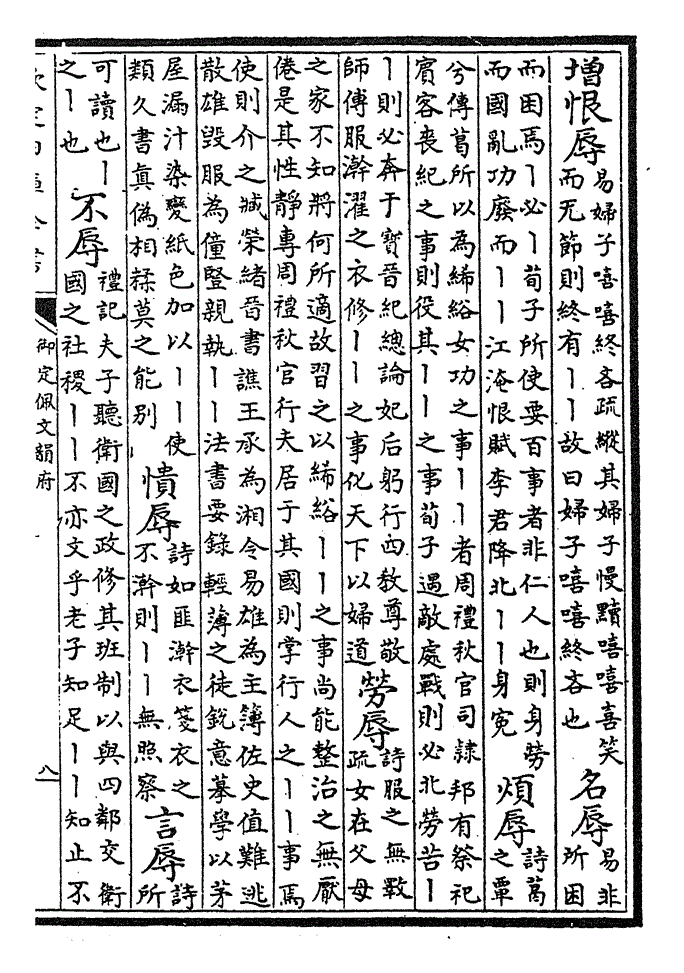 增恨辱
易婦子嘻嘻終吝疏縱其婦子慢黷嘻嘻喜笑
而无節則終有丨丨故曰婦子嘻嘻終吝也
名辱
易非
所困
而困焉丨必丨荀子所使要百事者非仁人也則身勞
而國亂功廢而丨丨江淹恨賦李君降北丨丨身寃
煩辱
詩葛
之覃
兮傳葛所以為絺綌女功之事丨丨者周禮秋官司隸邦有祭祀
賓客喪紀之事則役其丨丨之事荀子遇敵處戰則必北勞苦丨
丨則必奔于寳晉紀總論妃后躬行四教尊敬
師傅服澣濯之衣修丨丨之事化天下以婦道
勞辱
詩服之無斁
疏女在父母
之家不知將何所適故習之以絺綌丨丨之事尚能整治之無厭
倦是其性靜專周禮秋官行夫居于其國則掌行人之丨丨事焉
使則介之臧榮緒晉書譙王承為湘令易雄為主簿佐史值難逃
散雄毁服為僮豎親執丨丨法書要錄輕薄之徒銳意摹學以茅
屋漏汁染變紙色加以丨丨使
類久書真偽相糅莫之能别
憒辱
詩如匪澣衣箋衣之
不澣則丨丨無照察
言辱
詩
所
可讀也丨
之丨也
不辱
禮記夫子聽衛國之政修其班制以與四鄰交衛
國之社稷丨丨不亦文乎老子知足丨丨知止不
欽定四庫全書
御定佩文韻府
八